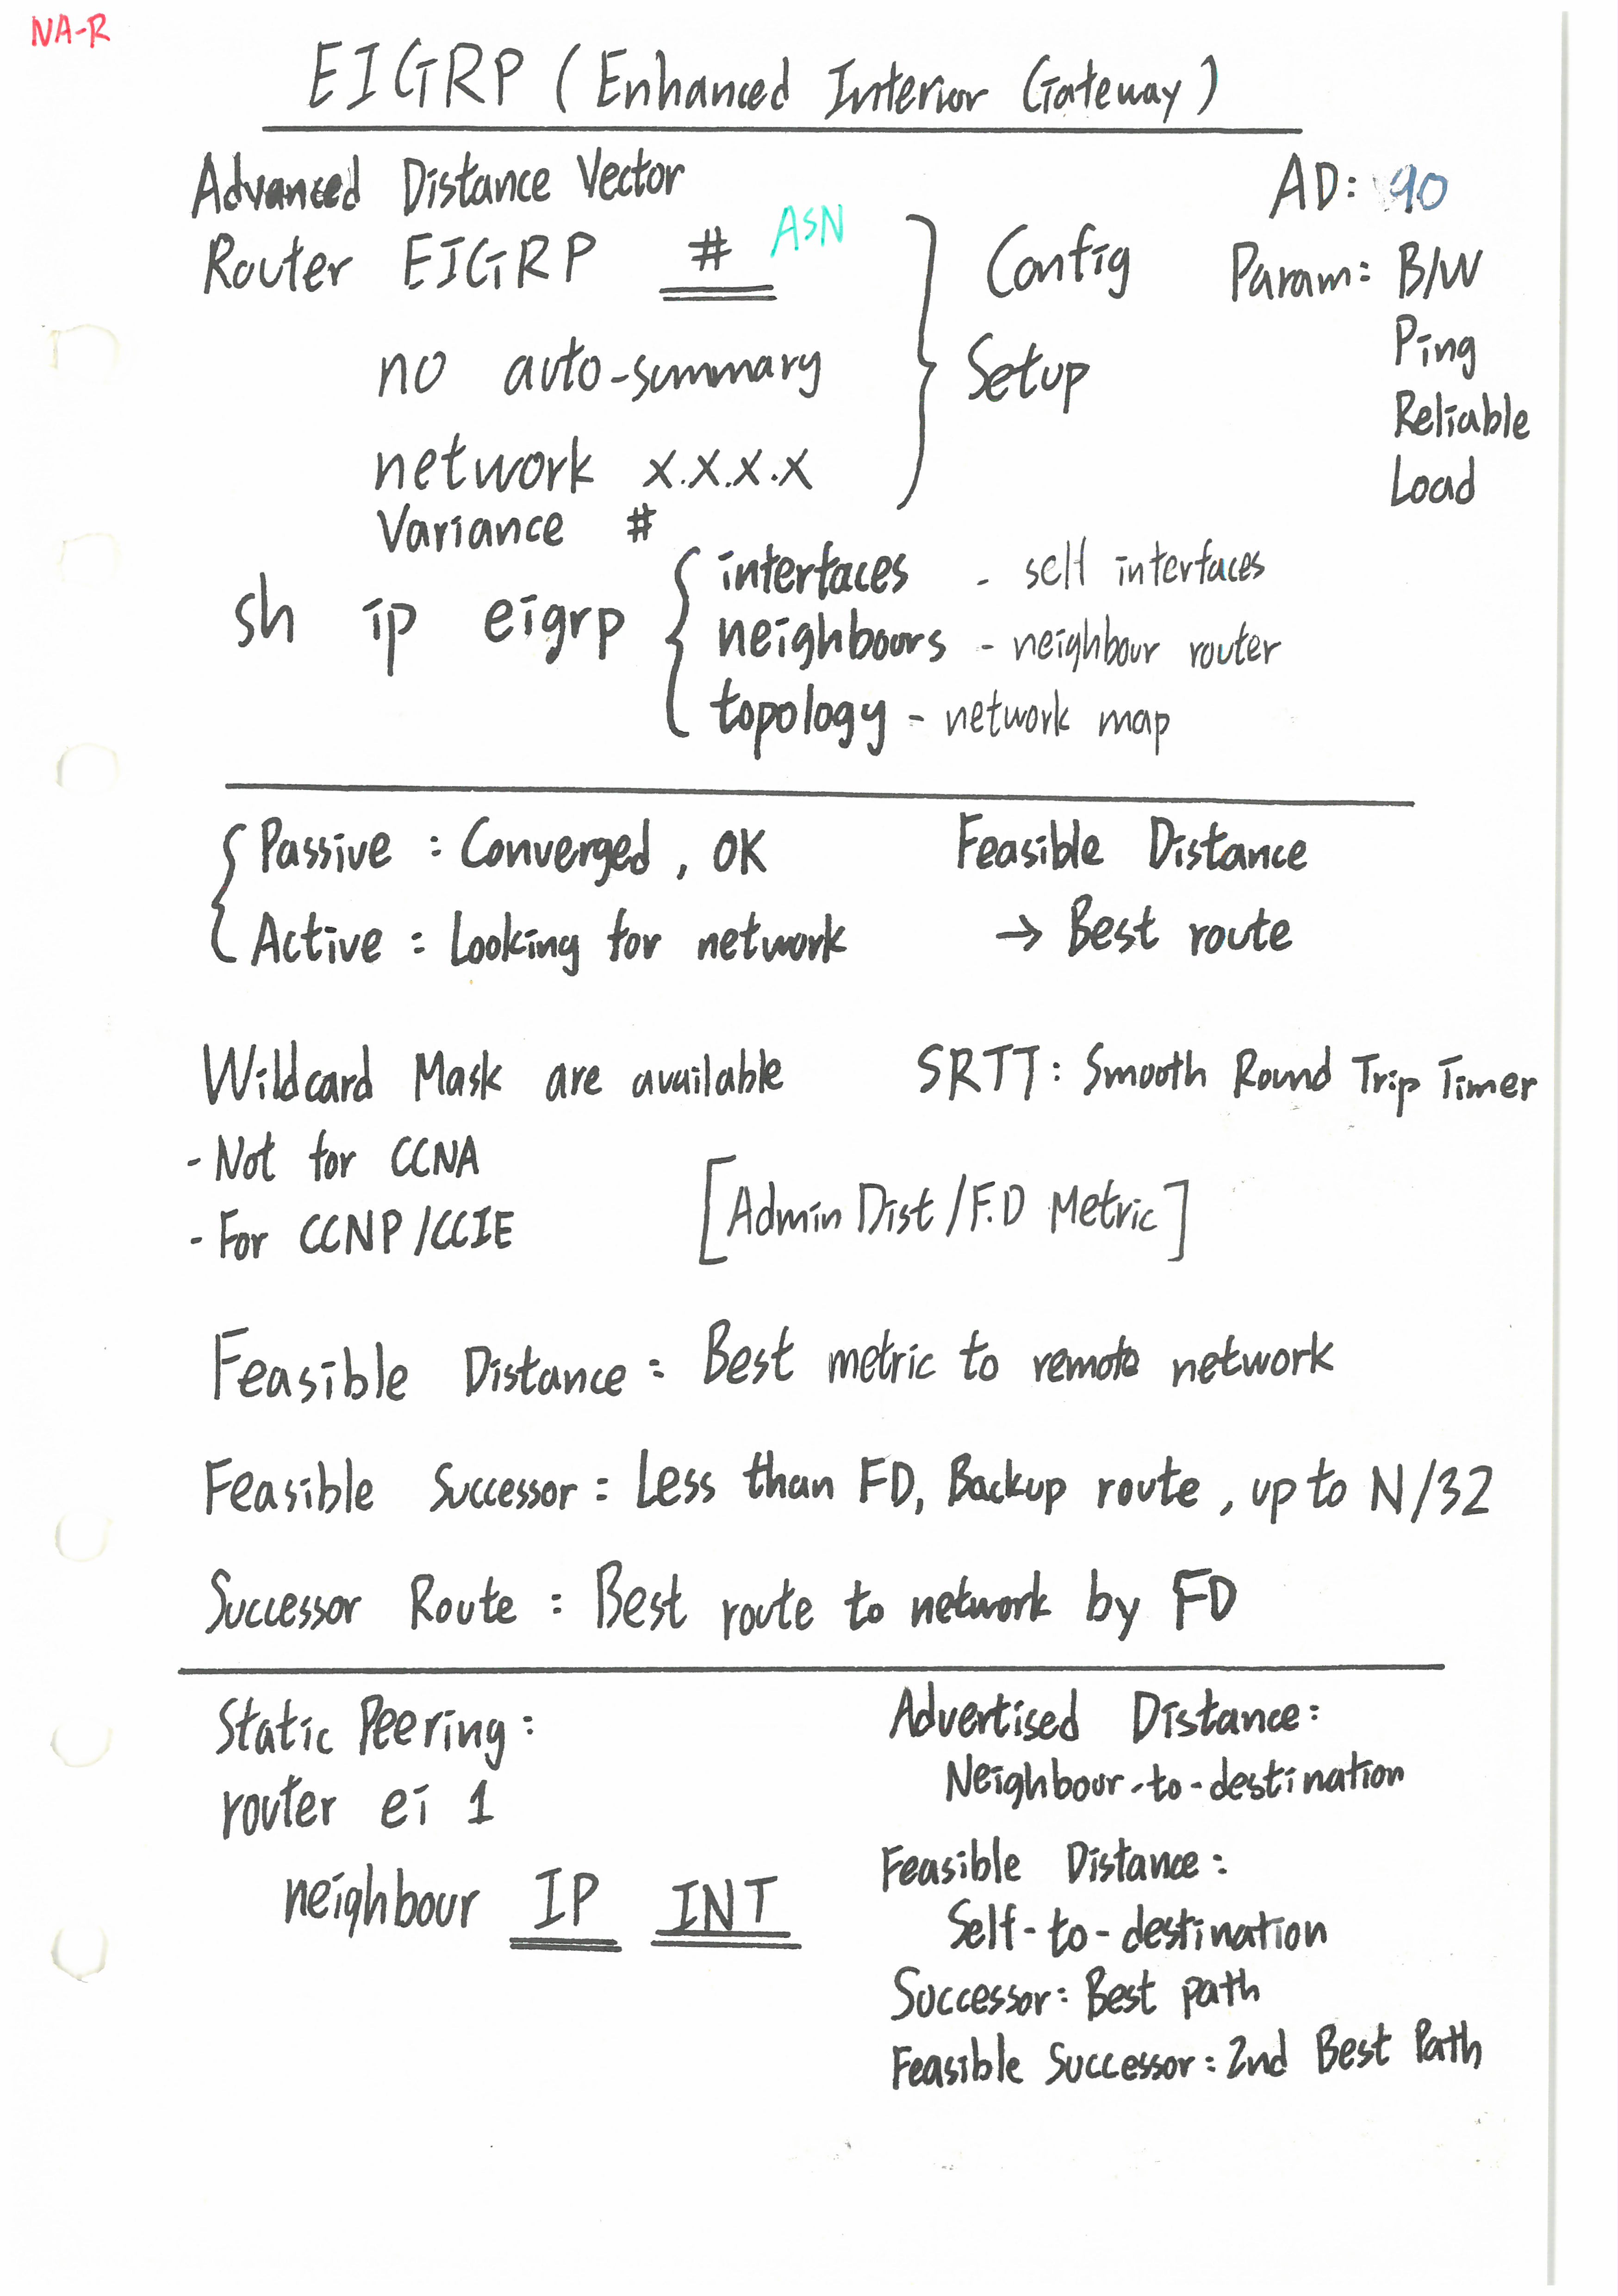 NA-R
EIGRP (Enhanced Interior Gateway)
Advanced Distance Vector
AD: 90
Router EIGRP # ASN
Config
Param: B/W
no auto-summary
Setup
Ping
Reliable
network x.x.x.x
Load
Variance #
sh ip eigrp
interfaces - self interfaces
neighbours - neighbour router
topology - network map
Passive : Converged, OK
Feasible Distance
Active : Looking for network
→ Best route
Wildcard Mask are available
SRTT: Smooth Round Trip Timer
- Not for CCNA
- For CCNP/CCIE
[Admin Dist/F.D Metric]
Feasible Distance : Best metric to remote network
Feasible Successor : Less than FD, Backup route, up to N/32
Successor Route : Best route to network by FD
Static Peering:
router ei 1
neighbour IP INT
Advertised Distance:
Neighbour-to-destination
Feasible Distance:
Self-to-destination
Successor: Best path
Feasible Successor: 2nd Best Path